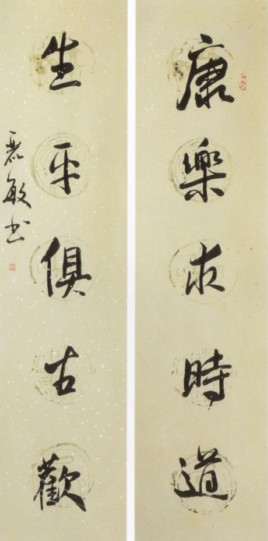 康樂求時道
生平俱古歡
敏书